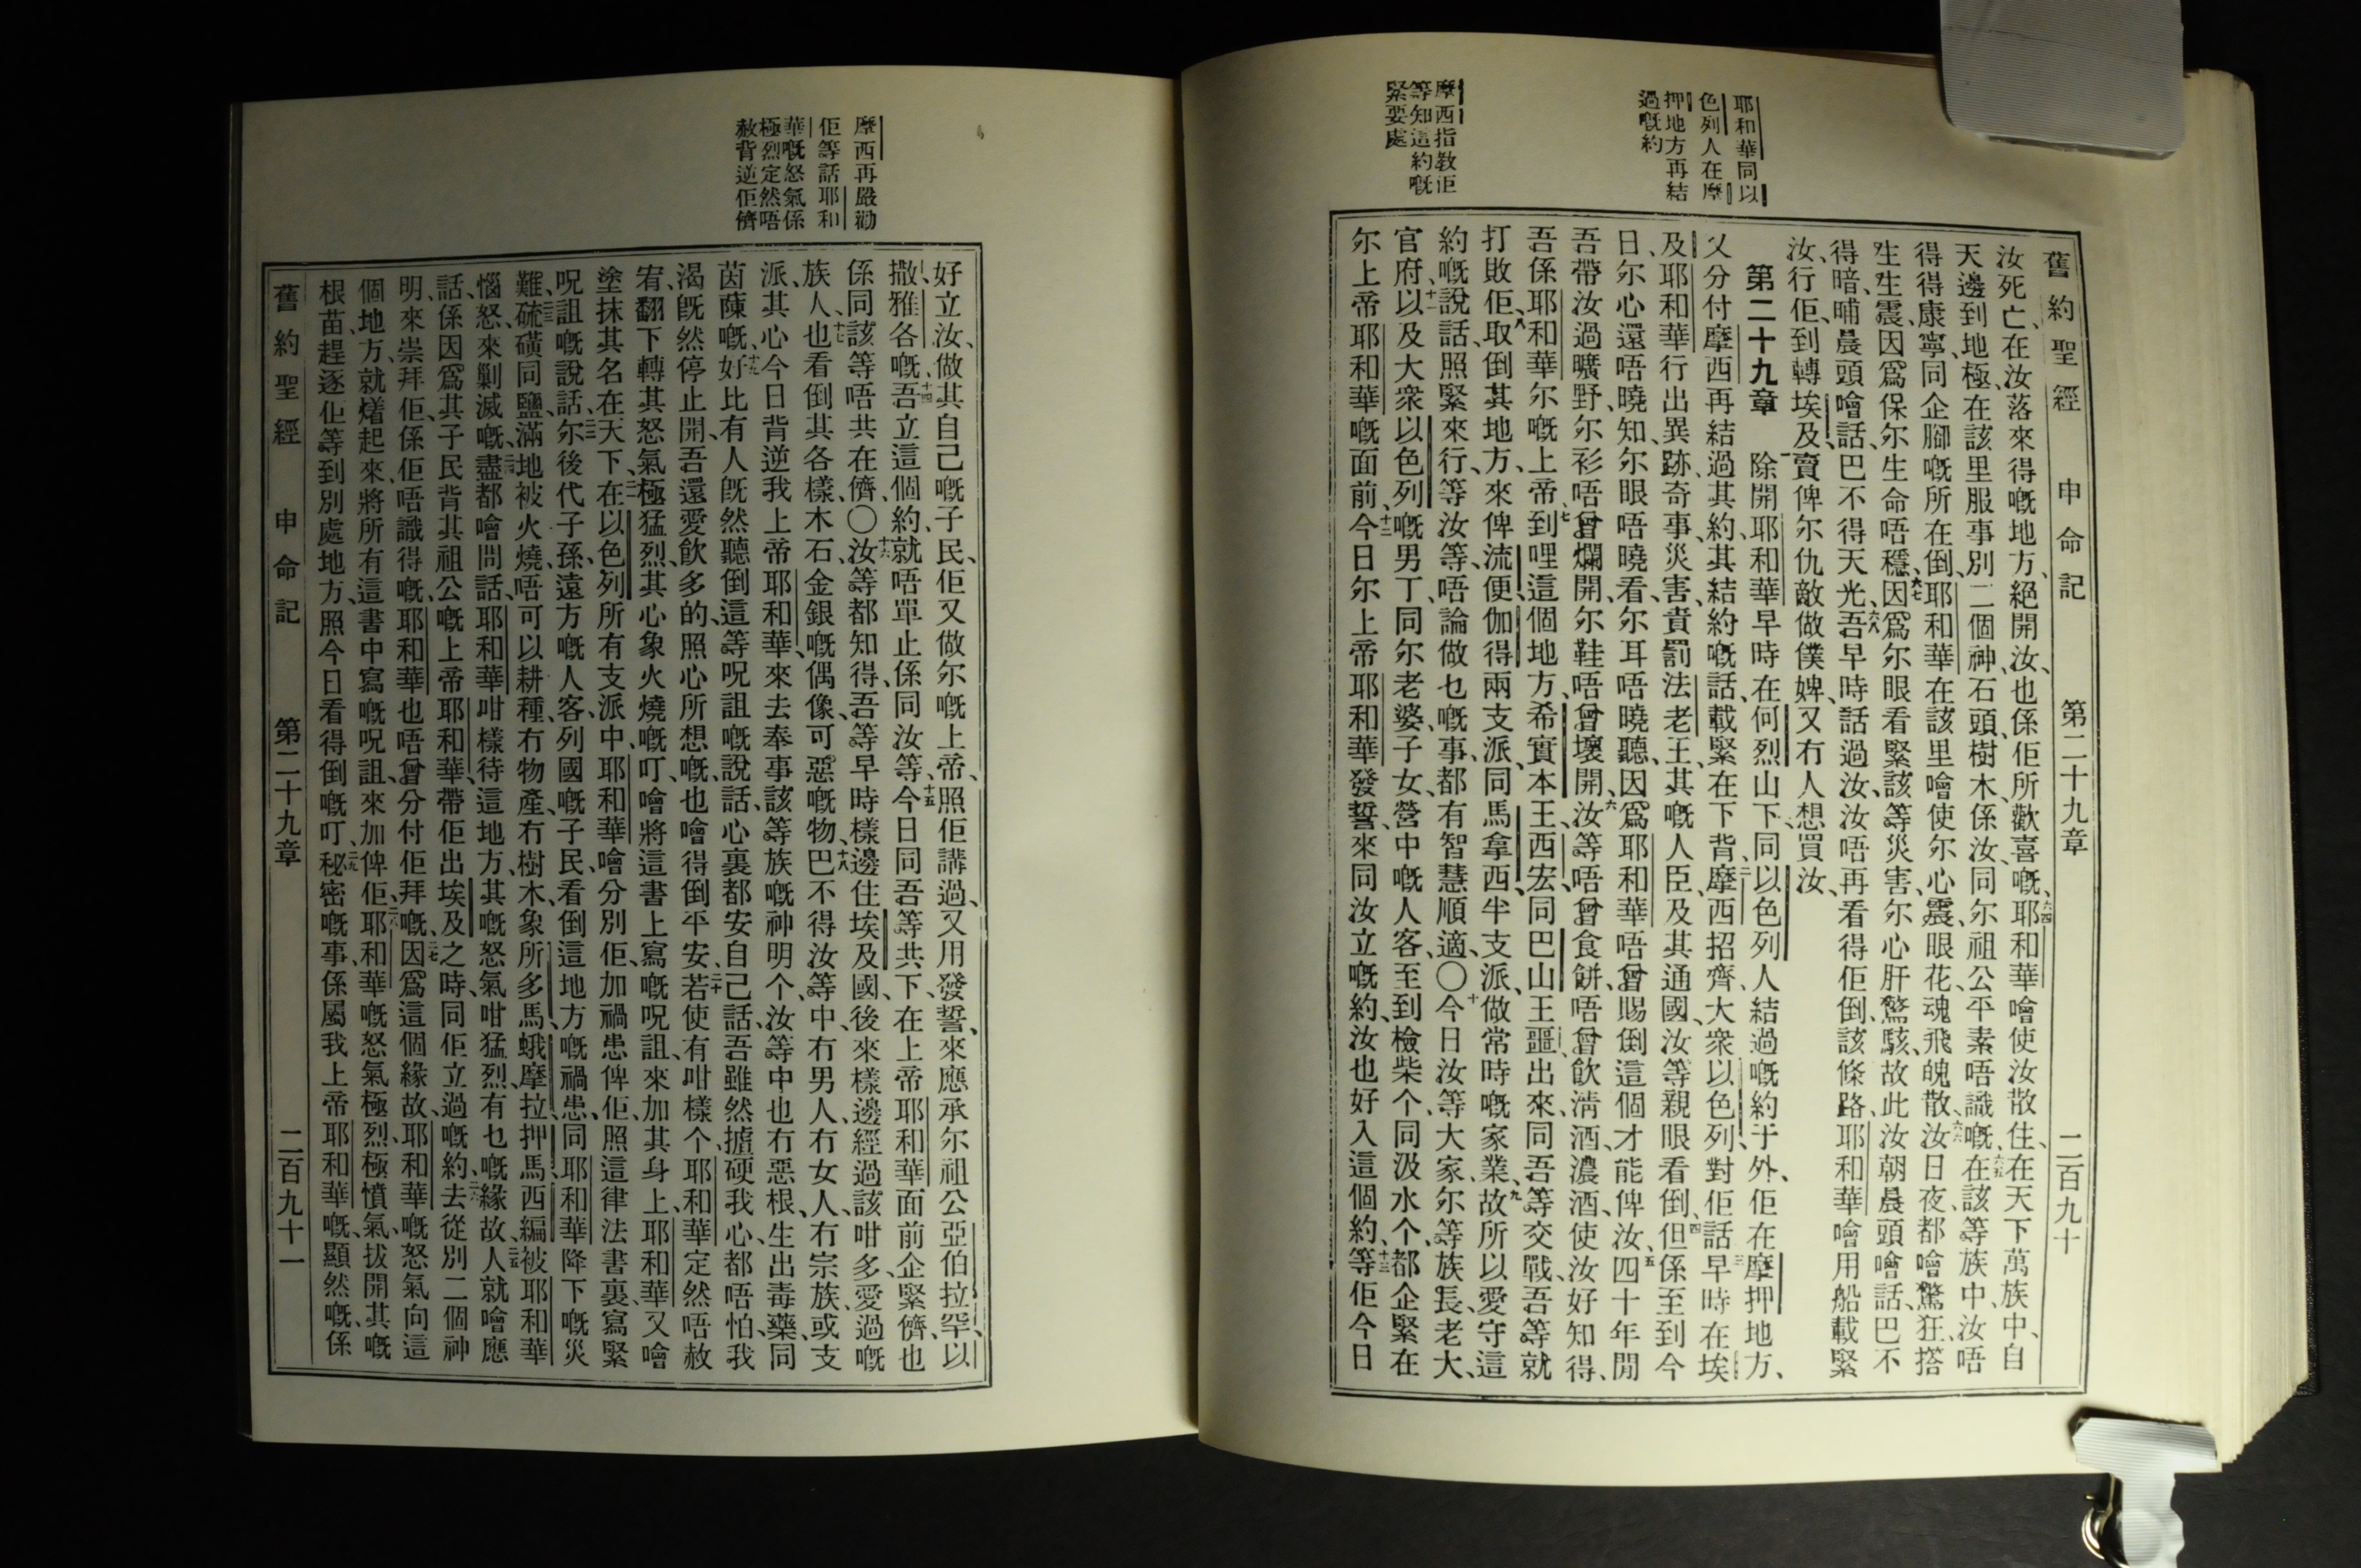 耶和華同以
色列人在摩
押地方再結
過嘅約
摩西指教佢
等知這約嘅
緊要處
舊約聖經 申命記 第二十九章 二百九十
汝死亡、在汝落來得嘅地方、絕開汝、也係佢所歡喜嘅、六四耶和華噲使汝散住、在天下萬族中、自
天邊到地極、在該里服事別二個神、石頭樹木、係汝同尔祖公平素唔識嘅、六五在該等族中、汝唔
得得康寧、同企腳嘅所在倒、耶和華在該里噲使尔心震、眼花、魂飛魄散、六六汝日夜都噲驚狂、搭
生生震、因爲保尔生命唔穩、六七因爲尔眼看緊該等災害、尔心肝驚駭、故此汝朝晨頭噲話、巴不
得暗晡、晨頭噲話、巴不得天光、六八吾早時話過汝、汝唔再看得佢倒、該條路、耶和華噲用船載緊
汝、行佢、到轉埃及、賣俾尔仇敵做僕婢、又冇人想買汝、
第二十九章 一除開耶和華早時在何烈山下、同以色列人結過嘅約于外、佢在摩押地方、
又分付摩西再結過其約、其結約嘅話、載緊在下背、二摩西招齊大衆以色列、對佢話、早時在埃
及耶和華行出異跡、奇事、災害、責罰法老王、其嘅人臣、及其通國、三汝等親眼看倒、四但係至到今
日、尔心還唔曉知、尔眼唔曉看、尔耳唔曉聽、因爲耶和華唔曾賜倒這個才能俾汝、五四十年間
吾帶汝過曠野、尔衫唔曾爛開、尔鞋唔曾壞開、六汝等唔曾食餅、唔曾飲淸酒濃酒、使汝好知得、
吾係耶和華尔嘅上帝、七到哩這個地方、希實本王西宏、同巴山王噩出來、同吾等交戰、吾等就
打敗佢、八取倒其地方、來俾流便伽得兩支派、同馬拿西半支派、做常時嘅家業、九故所以愛守這
約嘅說話、照緊來行、等汝等、唔論做乜嘅事、都有智慧順適、〇十今日汝等大家、尔等族長、老大、
官府、十一以及大衆以色列嘅男丁、同尔老婆、子女、營中嘅人客、至到檢柴个、同汲水个、都企緊在
尔上帝耶和華嘅面前、十二今日尔上帝耶和華發誓、來同汝立嘅約、汝也好入這個約、十三等佢今日
摩西再嚴勸
佢等話耶和
華嘅怒氣係
極烈定然唔
赦背逆佢儕
好立汝、做其自己嘅子民、佢又做尔嘅上帝、照佢講過、又用發誓、來應承尔祖公亞伯拉罕、以
撒、雅各嘅、十四吾立這個約、就唔單止係同汝等、十五今日同吾等共下、在上帝耶和華面前企緊儕、也
係同該等唔共在儕、〇十六汝等都知得、吾等早時樣邊住埃及國、後來樣邊經過該咁多、愛過嘅
族人、十七也看倒其各樣、木石金銀嘅偶像、可惡嘅物、十八巴不得汝等中、冇男人冇女人、冇宗族、或支
派、其心今日背逆我上帝耶和華、來去奉事該等族嘅神明个、汝等中也冇惡根、生出毒藥、同
茵蔯嘅、十九好比有人旣然聽倒這等呪詛嘅說話、心裏都安自己話、吾雖然摣硬我心、都唔怕、我
渴旣然停止開、吾還愛飲多的、照心所想嘅、也噲得倒平安、二十若使有咁樣个、耶和華定然唔赦
宥、翻下轉其怒氣極猛烈、其心象火燒嘅叮、噲將這書上寫嘅呪詛、來加其身上、耶和華又噲
塗抹其名在天下、二一在以色列所有支派中、耶和華噲分別佢、加禍患俾佢、照這律法書裏寫緊
呪詛嘅說話、二二尔後代子孫、遠方嘅人客、列國嘅子民、看倒這地方嘅禍患、同耶和華降下嘅災
難、二三硫磺同鹽、滿地被火燒、唔可以耕種、冇物產、冇樹木、象所多馬、蛾摩拉、押馬、西編、被耶和華
惱怒、來剿滅嘅、二四盡都噲問話、耶和華咁樣待這地方、其嘅怒氣咁猛烈、有乜嘅緣故、二五人就噲應
話、係因爲其子民背其祖公嘅上帝耶和華、帶佢出埃及之時、同佢立過嘅約、二六去從別二個神
明、來崇拜佢、係佢唔識得嘅、耶和華也唔曾分付佢拜嘅、二七因爲這個緣故、耶和華嘅怒氣向這
個地方、就㷮起來、將所有這書中寫嘅呪詛、來加俾佢、二八耶和華嘅怒氣極烈、極憤氣、拔開其嘅
根苗、趕逐佢等到別處地方、照今日看得倒嘅叮、二九秘密嘅事、係屬我上帝耶和華嘅、顯然嘅、係
舊約聖經 申命記 第二十九章 二百九十一